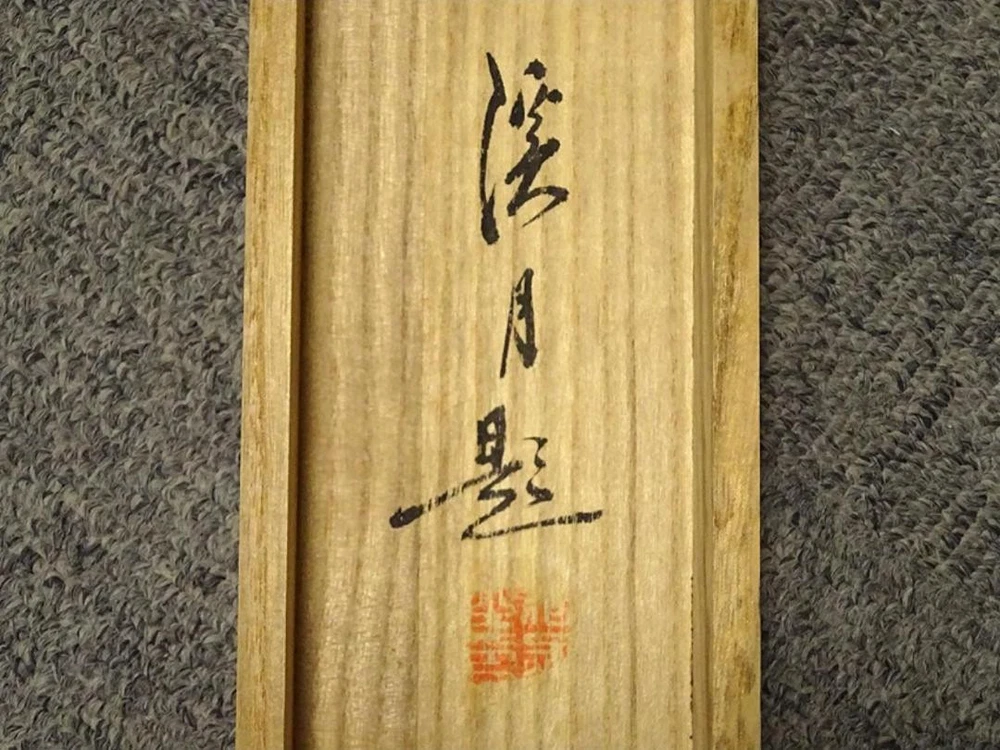 溪月題